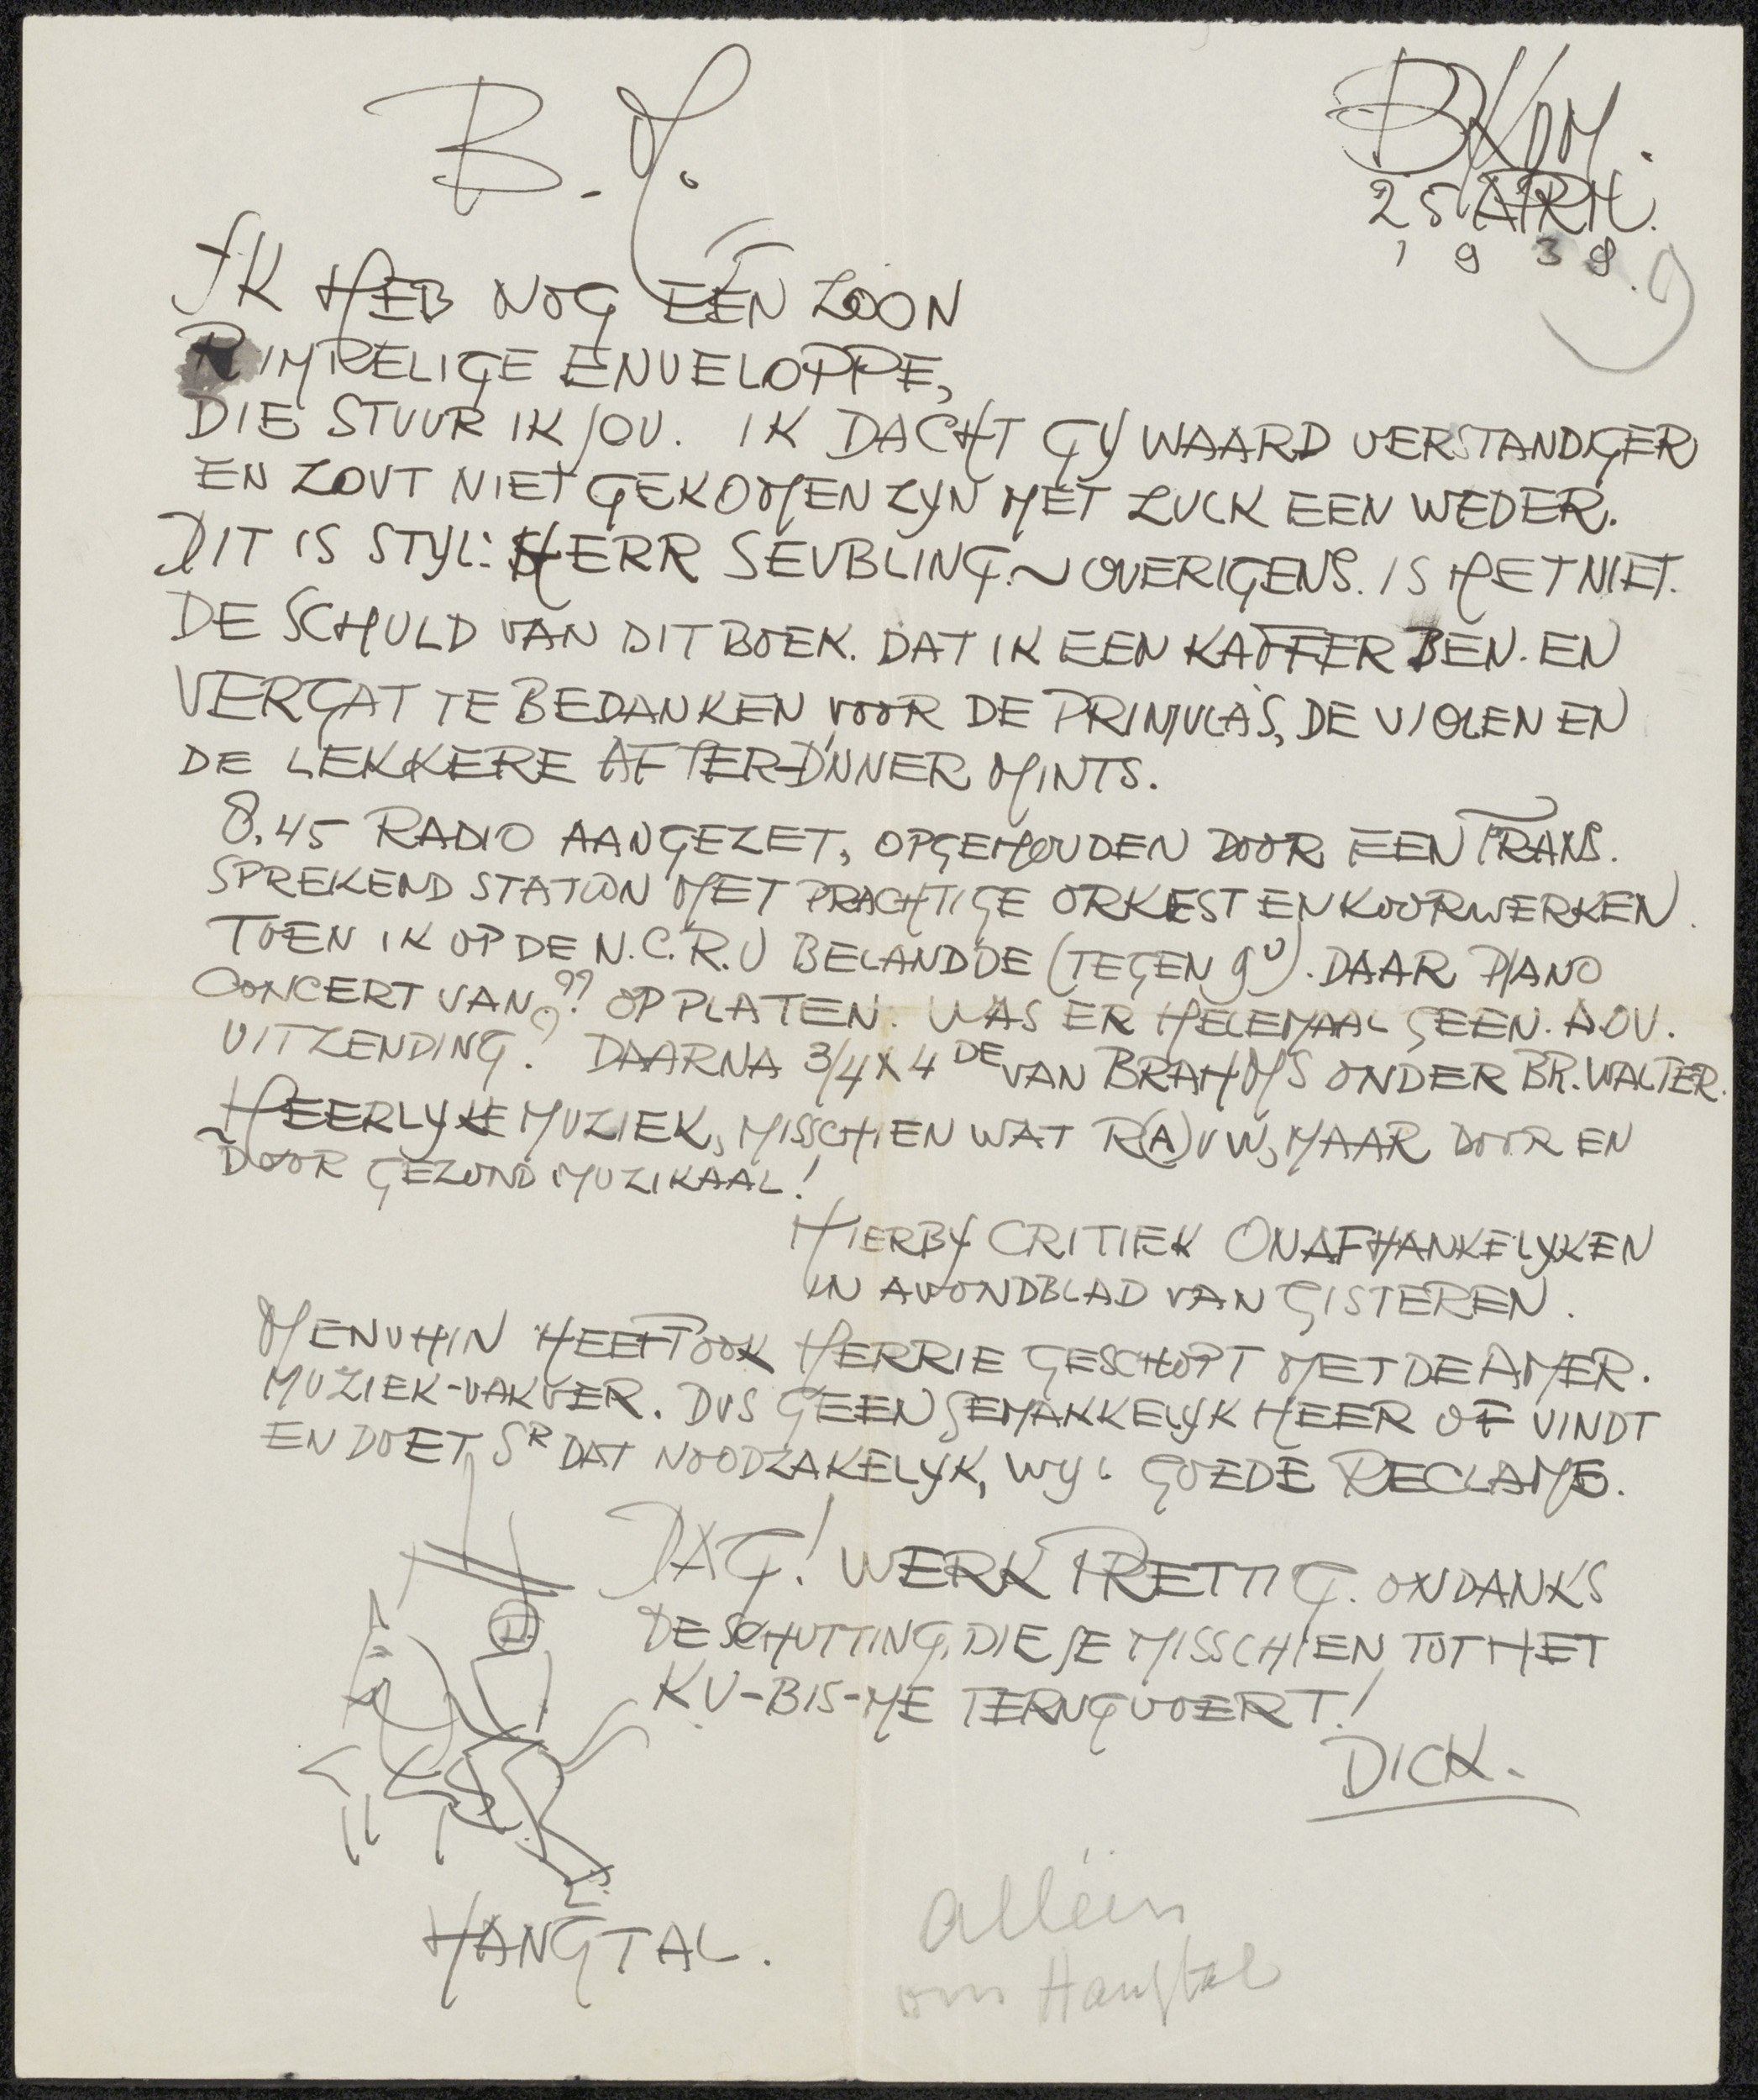 B. M.
BKDM.
25 APRIL.
1938.
9
IK HEB NOG ÉÉN ZOON
RIMPELIGE ENVELOPPE,
DIE STUUR IK JOU. IK DACHT GY WAARD VERSTANDIGER
EN ZOUT NIET GEKOMEN ZYN MET ZULK EEN WEDER.
DIT IS STYL: HERR SEUBLING. ~ OVERIGENS. IS HET NIET.
DE SCHULD VAN DIT BOEK. DAT IK EEN KAFFER BEN. EN
VERGAT TE BEDANKEN VOOR DE PRIMULA'S, DE VIOLEN EN
DE LEKKERE AFTER-DINNER MINTS.
8.45 RADIO AANGEZET, OPGEHOUDEN DOOR EEN FRANS.
SPREKEND STATION MET PRACHTIGE ORKEST EN KOORWERKEN.
TOEN IK OP DE N.C.R.V BELANDDE (TEGEN 9U). DAAR PIANO
CONCERT VAN ?? OP PLATEN. WAS ER HELEMAAL GEEN A.OU.
UITZENDING? DAARNA 3/4 X 4 DE VAN BRAHMS ONDER BR. WALTER.
HEERLYKE MUZIEK, MISSCHIEN WAT R(A)UW, MAAR DOOR EN
DOOR GEZOND MUZIKAAL!
HIERBY CRITIEK ONAFHANKELYKEN
IN AVONDBLAD VAN GISTEREN.
MENUHIN HEEFT OOK HERRIE GESCHOPT MET DE AMER.
MUZIEK-VAKVER. DUS GEEN GEMAKKELYK HEER OF VINDT
EN DOET SR DAT NOODZAKELYK, WYL GOEDE RECLAME.
DAG! WERK PRETTIG. ONDANKS
DE SCHUTTING, DIE JE MISSCHIEN TOT HET
KU-BIS-ME TERUGVOERT!
DICK.
HANGTAL.
allein
om Hangtal